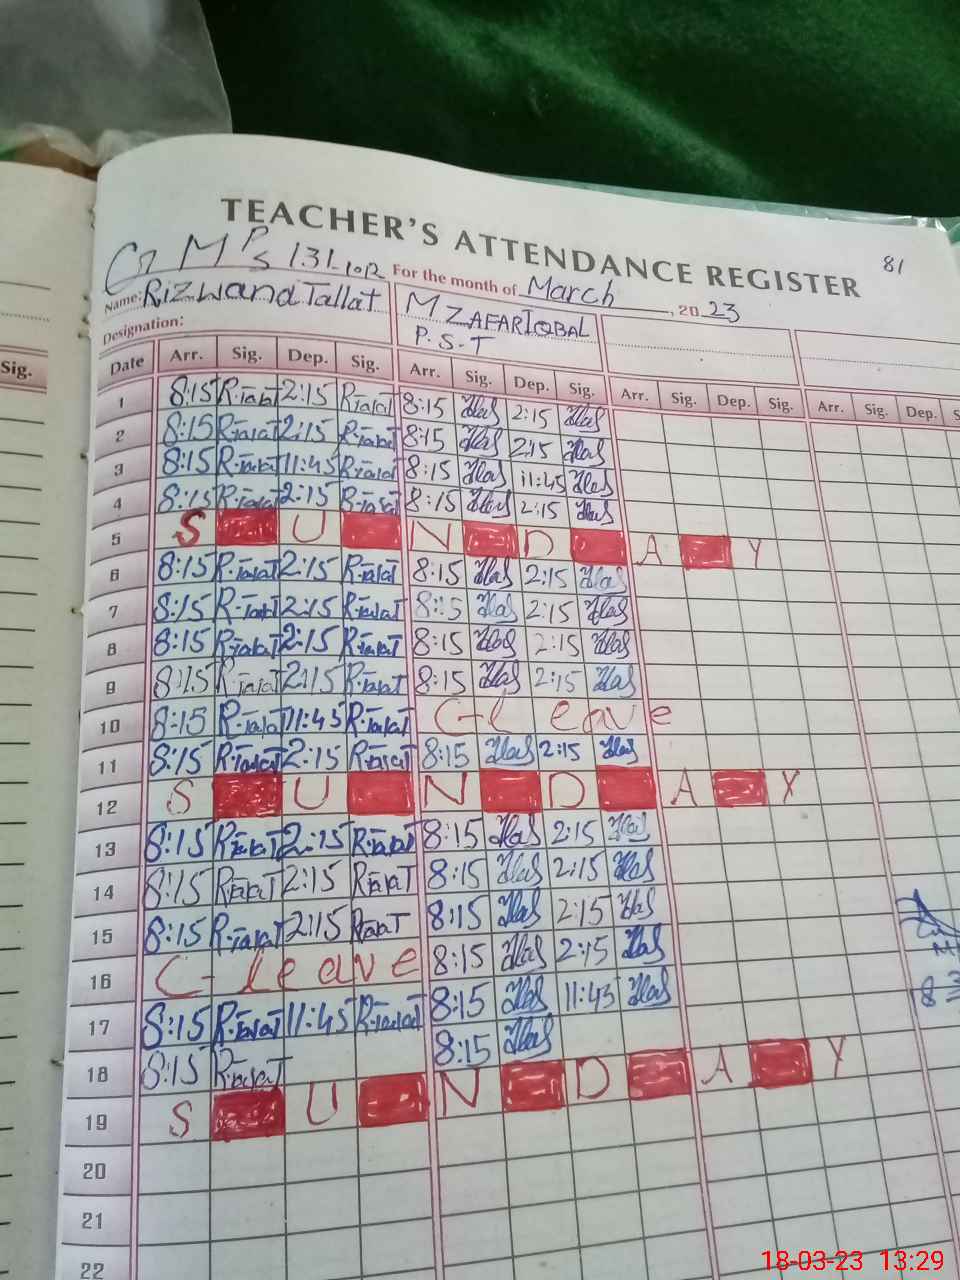 TEACHER'S ATTENDANCE REGISTER
81
G M P S 131-10R For the month of March, 2023
Name: Rizwana Tallat M ZAFAR IQBAL
Designation: P.S.T
Sig. Date Arr. Sig. Dep. Sig. Arr. Sig. Dep. Sig. Arr. Sig. Dep. Sig. Arr. Sig. Dep. S
1 8:15 R-Talat 2:15 R-Talat 8:15 2:15
2 8:15 R-Talat 2:15 R-Talat 8:15 2:15
3 8:15 R-Talat 11:45 R-Talat 8:15 11:45
4 8:15 R-Talat 2:15 R-Talat 8:15 2:15
5 S U N D A Y
6 8:15 R-Talat 2:15 R-Talat 8:15 2:15
7 8:15 R-Talat 2:15 R-Talat 8:15 2:15
8 8:15 R-Talat 2:15 R-Talat 8:15 2:15
9 8:15 R-Talat 2:15 R-Talat 8:15 2:15
10 8:15 R-Talat 11:45 R-Talat C-leave
11 8:15 R-Talat 2:15 R-Talat 8:15 2:15
12 S U N D A Y
13 8:15 R-Talat 2:15 R-Talat 8:15 2:15
14 8:15 R-Talat 2:15 R-Talat 8:15 2:15
15 8:15 R-Talat 2:15 R-Talat 8:15 2:15
16 C-leave 8:15 2:15
17 8:15 R-Talat 11:45 R-Talat 8:15 11:45
18 8:15 R-Talat 8:15
19 S U N D A Y
20
21
22
18-03-23 13:29